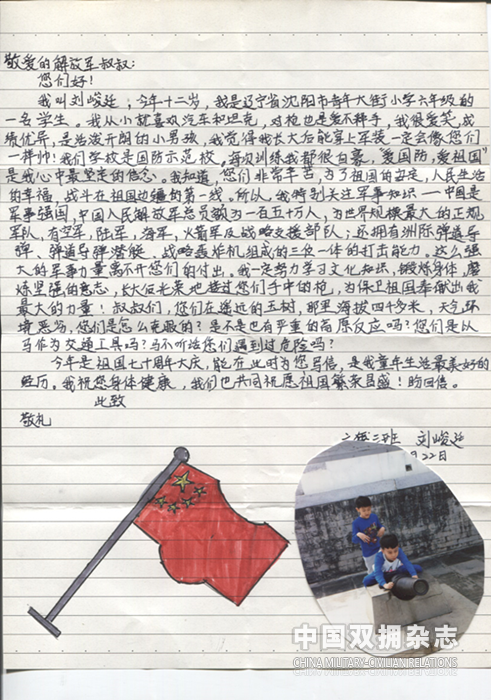 敬爱的解放军叔叔:
您们好!
我叫刘峻延,今年十二岁,我是辽宁省沈阳市青年大街小学六年级的
一名学生。我从小就喜欢汽车和坦克,对枪也是爱不释手,我很爱笑,成
绩优异,是活泼开朗的小男孩,我觉得我长大后能穿上军装一定会像您们
一样帅!我们学校是国防示范校。每次训练我都很自豪,“爱国防,爱祖国”
是我心中最坚定的信念。我知道,您们非常辛苦,为了祖国的安定,人民生活
的幸福,战斗在祖国边疆的第一线。所以,我特别关注军事知识——中国是
军事强国,中国人民解放军总员额为一百五十万人,为世界规模最大的正规
军队,有空军,陆军,海军,火箭军及战略支援部队;还拥有洲际弹道导
弹、弹道导弹潜艇、战略轰炸机组成的三位一体的打击能力。这么强
大的军事力量离不开您们的付出。我一定努力学习文化知识,锻炼身体,磨
炼坚强的意志,长大后光荣地接过您们手中的枪,为保卫祖国奉献出我
最大的力量!叔叔们,您们在遥远的五树,那里海拔四千多米,天气环
境恶劣,您们是怎么克服的?是不是也有严重的高原反应吗?您们是以
马作为交通工具吗?马不听话您们遇到过危险吗?
今年是祖国七十周年大庆,能在此时为您写信,是我童年生活最美好的
经历。我祝您身体健康,我们也共同祝愿祖国繁荣昌盛!盼回信。
此致
敬礼
二班 刘峻延
22日
中国双拥杂志
CHINA MILITARY-CIVILIAN RELATIONS